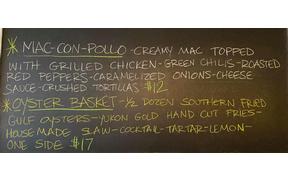 * MAC-CON-POLLO - CREAMY MAC TOPPED
WITH GRILLED CHICKEN - GREEN CHILIS - ROASTED
RED PEPPERS - CARAMELIZED ONIONS - CHEESE
SAUCE - CRUSHED TORTILLAS $12
* OYSTER BASKET - ½ DOZEN SOUTHERN FRIED
GULF OYSTERS - YUKON GOLD HAND CUT FRIES -
HOUSEMADE SLAW - COCKTAIL - TARTAR - LEMON -
ONE SIDE $17